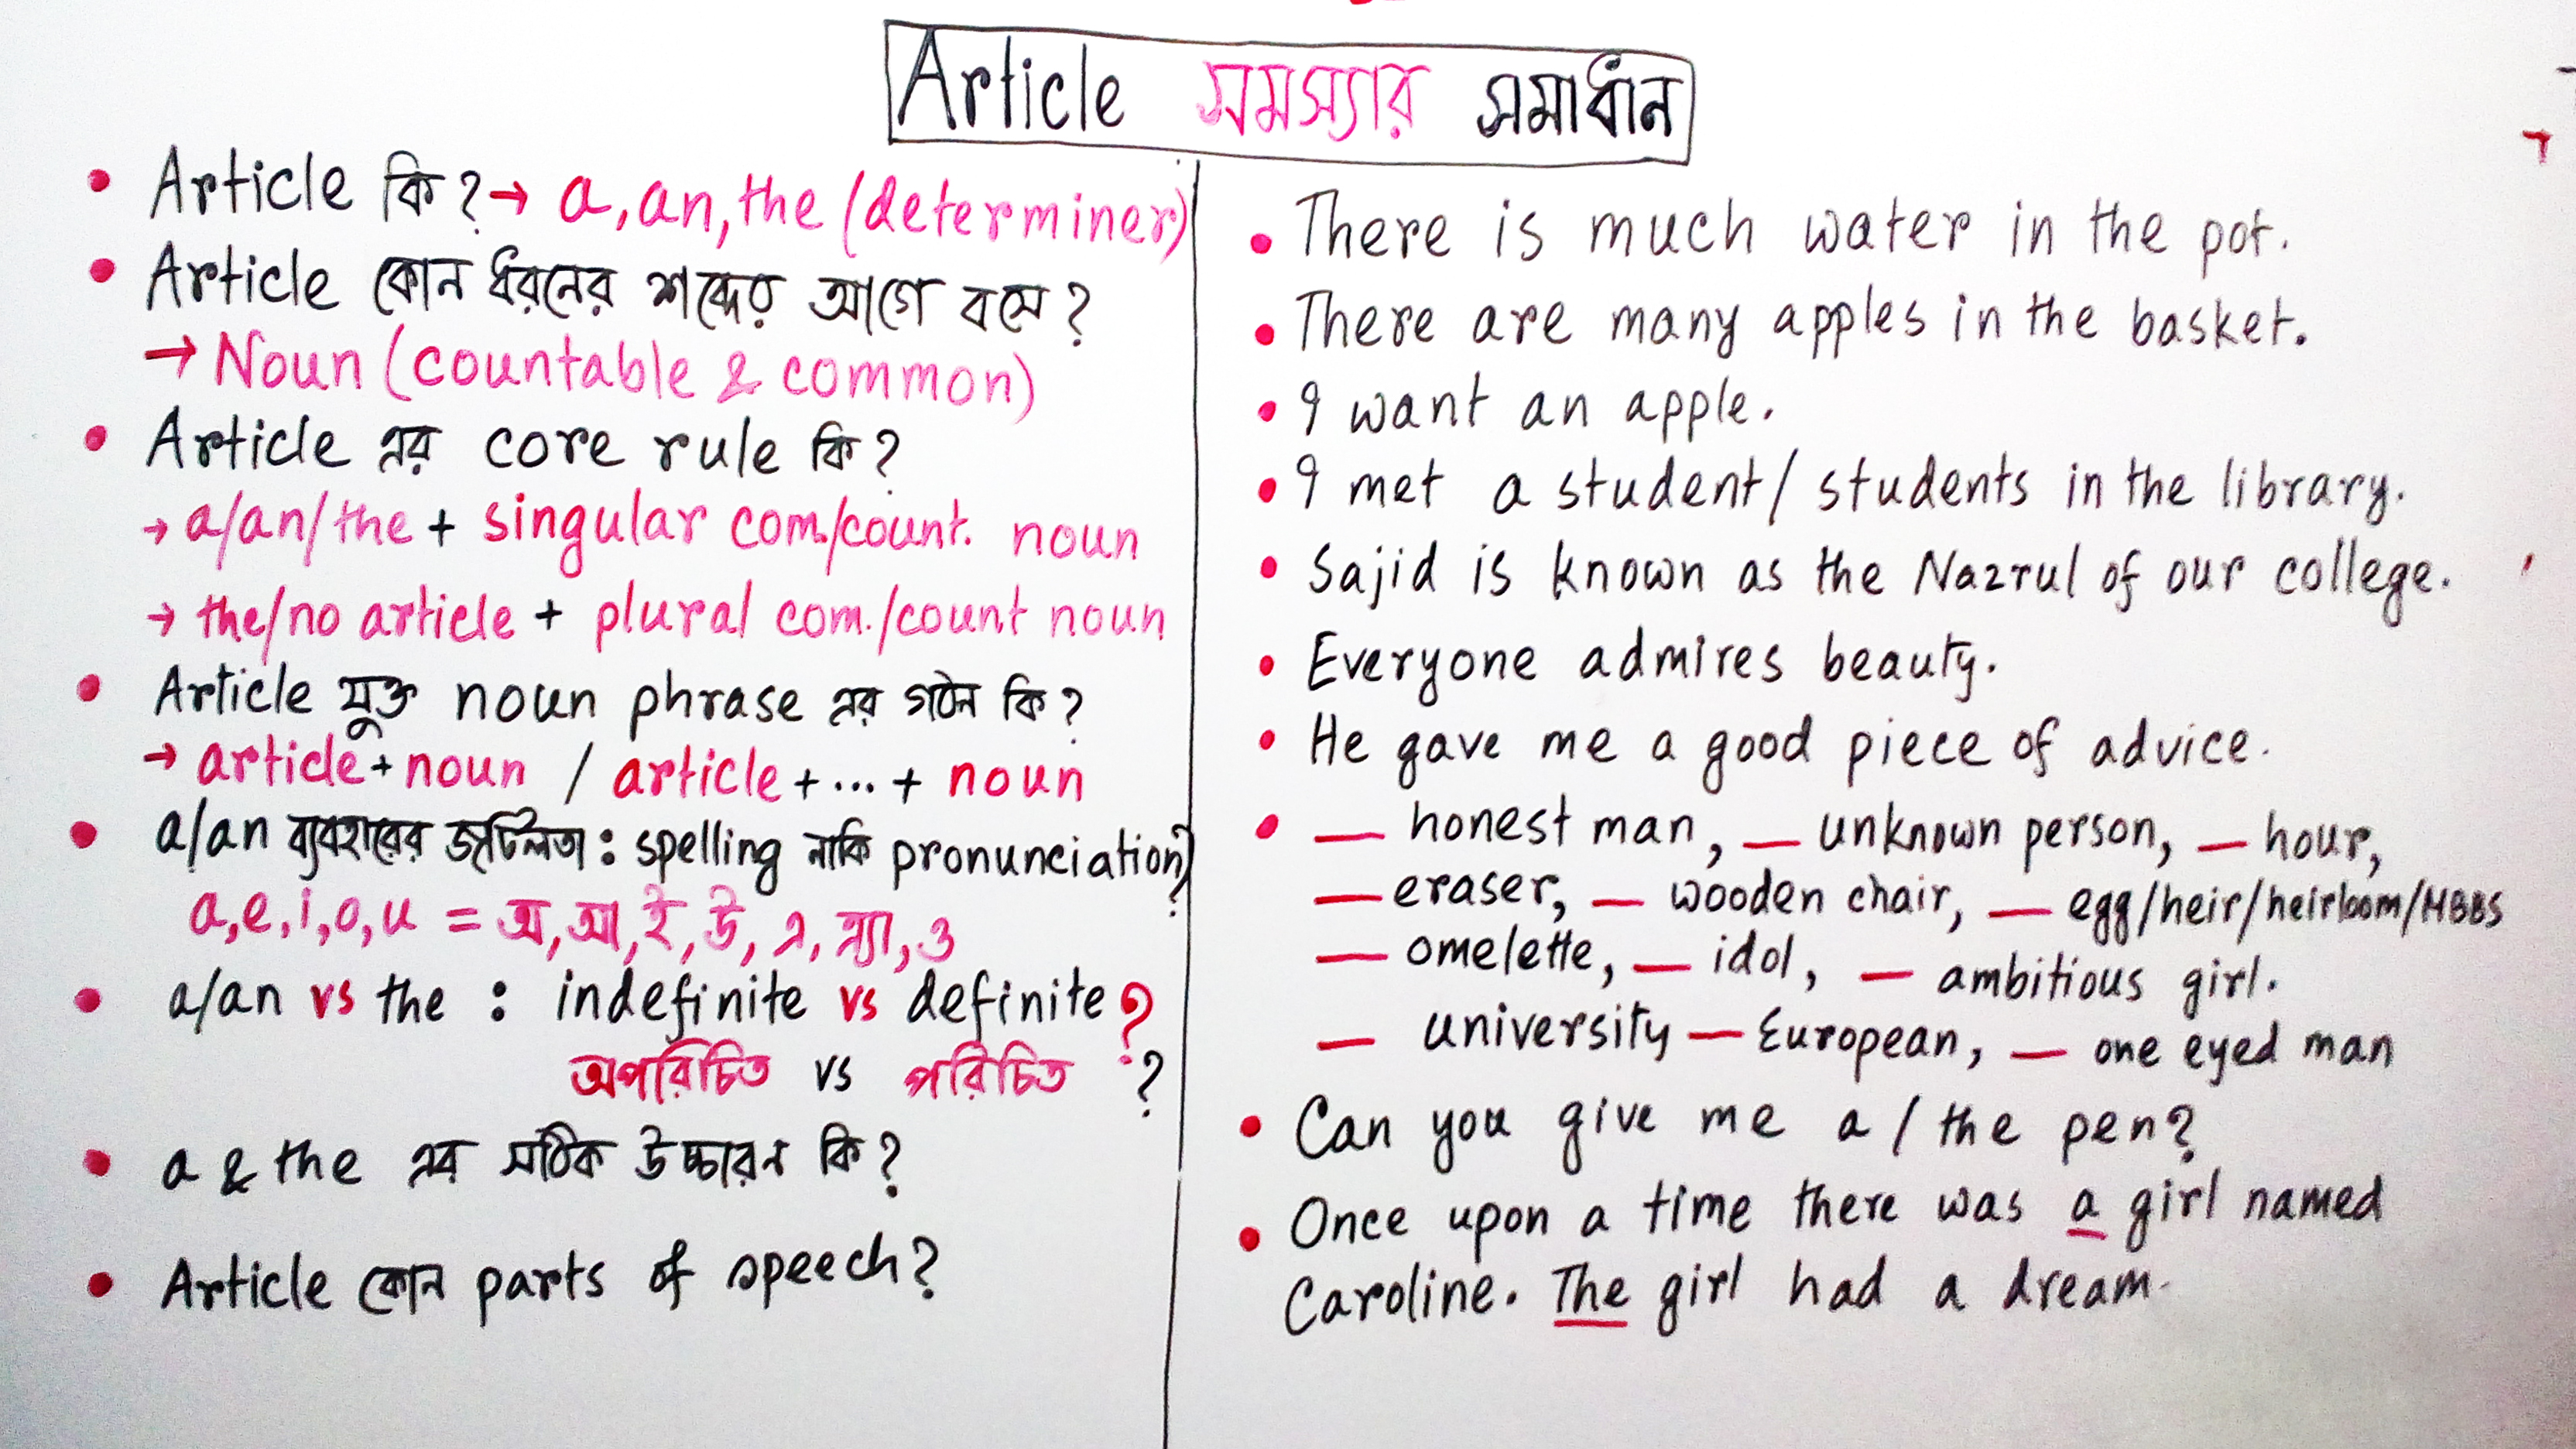 Article সমস্যার সমাধান
• Article কি? → a, an, the (determiner)
• Article কোন ধরনের শব্দের আগে বসে?
→ Noun (countable & common)
• Article এর core rule কি?
→ a/an/the + singular com./count. noun
→ the/no article + plural com./count noun
• Article যুক্ত noun phrase এর গঠন কি?
→ article + noun / article + ... + noun
• a/an ব্যবহারের জটিলতা : spelling নাকি pronunciation?
a, e, i, o, u = অ, আ, ই, উ, এ, এ্যা, ও
• a/an vs the : indefinite vs definite?
অপরিচিত vs পরিচিত ?
• a & the এর সঠিক উচ্চারন কি?
• Article কোন parts of speech?
• There is much water in the pot.
• There are many apples in the basket.
• I want an apple.
• I met a student/ students in the library.
• Sajid is known as the Nazrul of our college.
• Everyone admires beauty.
• He gave me a good piece of advice.
• — honest man, — unknown person, — hour,
— eraser, — wooden chair, — egg/heir/heirloom/MBBS
— omelette, — idol, — ambitious girl.
— university — European, — one eyed man
• Can you give me a / the pen?
• Once upon a time there was a girl named
Caroline. The girl had a dream.